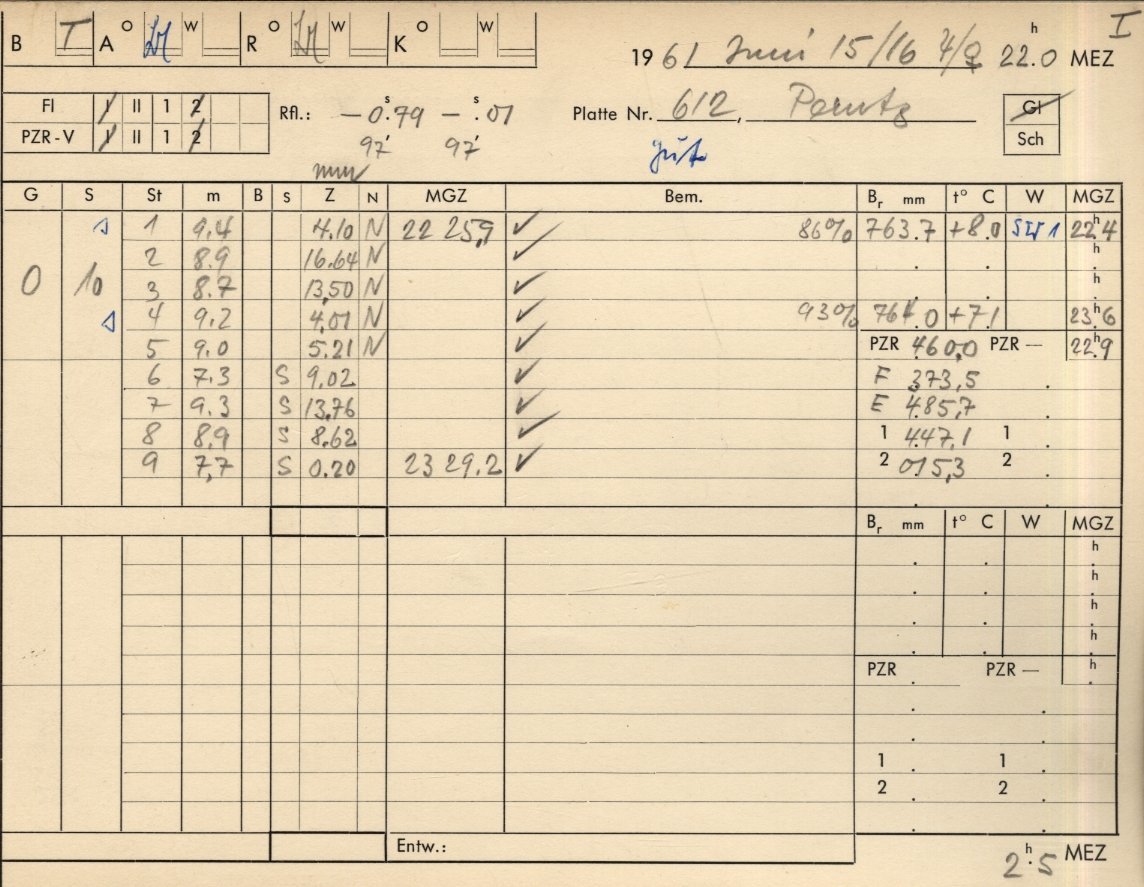 B T A O W R O W K O W I
1961 Juni 15/16 ♃/♀ 22.0 h MEZ
FI I II 1 2 Rfl.: – 0.s79 – .s01 Platte Nr. 612, Perutz Gl
PZR-V I II 1 2 97' 97' gut Sch
G S St m B S Z N MGZ Bem. Br mm t° C W MGZ
1 9.4 4.10 N 22 25,9 ✓ 86% 763.7 +8.0 SW 1 22h.4
2 8.9 16.64 N ✓ h
0 10 3 8.7 13,50 N ✓ h
4 9.2 4.01 N ✓ 93% 764.0 +7.1 23h.6
5 9.0 5.21 N ✓ PZR 460,0 PZR — 22h.9
6 7.3 S 9.02 ✓ F 373,5
7 9.3 S 13.76 ✓ E 485,7
8 8.9 S 8.62 ✓ 1 447.1 1
9 7,7 S 0.20 23 29.2 ✓ 2 015,3 2
Br mm t° C W MGZ
h
h
h
h
PZR PZR — h
1 1
2 2
Entw.: 2h.5 MEZ